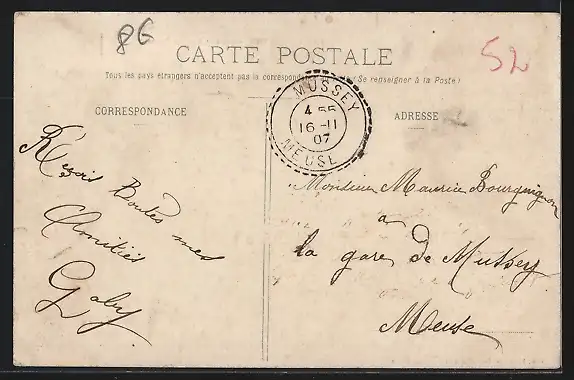 86
52
CARTE POSTALE
Tous les pays étrangers n'acceptent pas la correspondance (Se renseigner à la Poste)
CORRESPONDANCE
ADRESSE
MUSSEY
4 55
16 -11
07
MEUSE
Reçois Toutes mes
Amitiés
Gaby
Monsieur Maurice Bourguignon
a
la gare de Mussey
Meuse